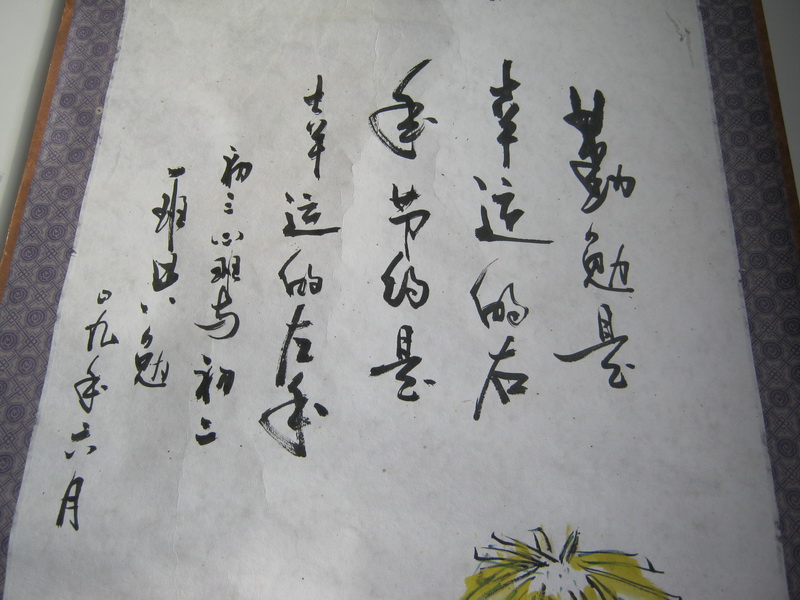 勤勉是
幸运的右
手节约是
幸运的左手
初三心班与初二
一班共勉
〇九年六月